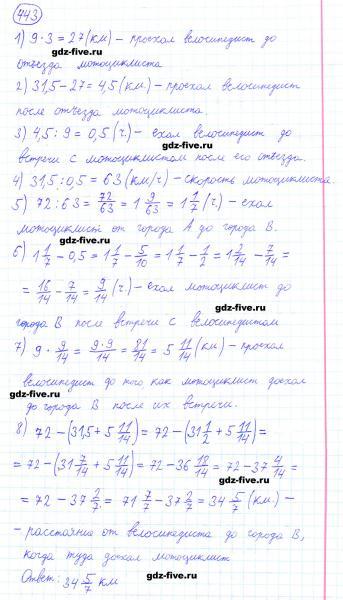 443
1) 9·3 = 27 (км) – проехал велосипедист до
gdz-five.ru
отъезда мотоциклиста
2) 31,5 – 27 = 4,5 (км) – проехал велосипедист
gdz-five.ru
после отъезда мотоциклиста
3) 4,5 : 9 = 0,5 (ч.) – ехал велосипедист до
gdz-five.ru
встречи с мотоциклистом после его отъезда.
4) 31,5 : 0,5 = 63 (км/ч) – скорость мотоциклиста.
gdz-five.ru
5) 72 : 63 = 72/63 = 1 9/63 = 1 1/7 (ч) – ехал
мотоциклист от города А до города В.
gdz-five.ru
6) 1 1/7 – 0,5 = 1 1/7 – 5/10 = 1 1/7 – 1/2 = 1 2/14 – 7/14 =
= 16/14 – 7/14 = 9/14 (ч.) – ехал мотоциклист до
gdz-five.ru
города В после встречи с велосипедистом
gdz-five.ru
7) 9 · 9/14 = 9·9/14 = 81/14 = 5 11/14 (км) – проехал
gdz-five.ru
велосипедист до того как мотоциклист доехал
gdz-five.ru
до города В после их встречи.
8) 72 – (31,5 + 5 11/14) = 72 – (31 1/2 + 5 11/14) =
gdz-five.ru
= 72 – (31 7/14 + 5 11/14) = 72 – 36 18/14 = 72 – 37 4/14 =
gdz-five.ru
= 72 – 37 2/7 = 71 7/7 – 37 2/7 = 34 5/7 (км) –
gdz-five.ru
– расстояние от велосипедиста до города В,
когда туда доехал мотоциклист
gdz-five.ru
Ответ: 34 5/7 км
gdz-five.ru